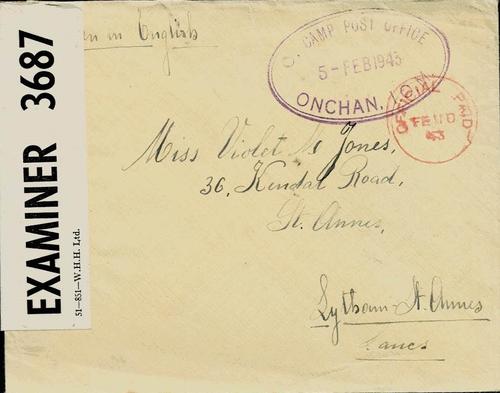 EXAMINER 3687
51—851—W.H.H. Ltd.
in English
CAMP POST OFFICE
5-FEB 1943
ONCHAN, I.O.M.
OFFICIAL PAID
43
Miss Violet M Jones,
36, Kendal Road,
St. Annes,
Lytham-St. Annes
Lancs